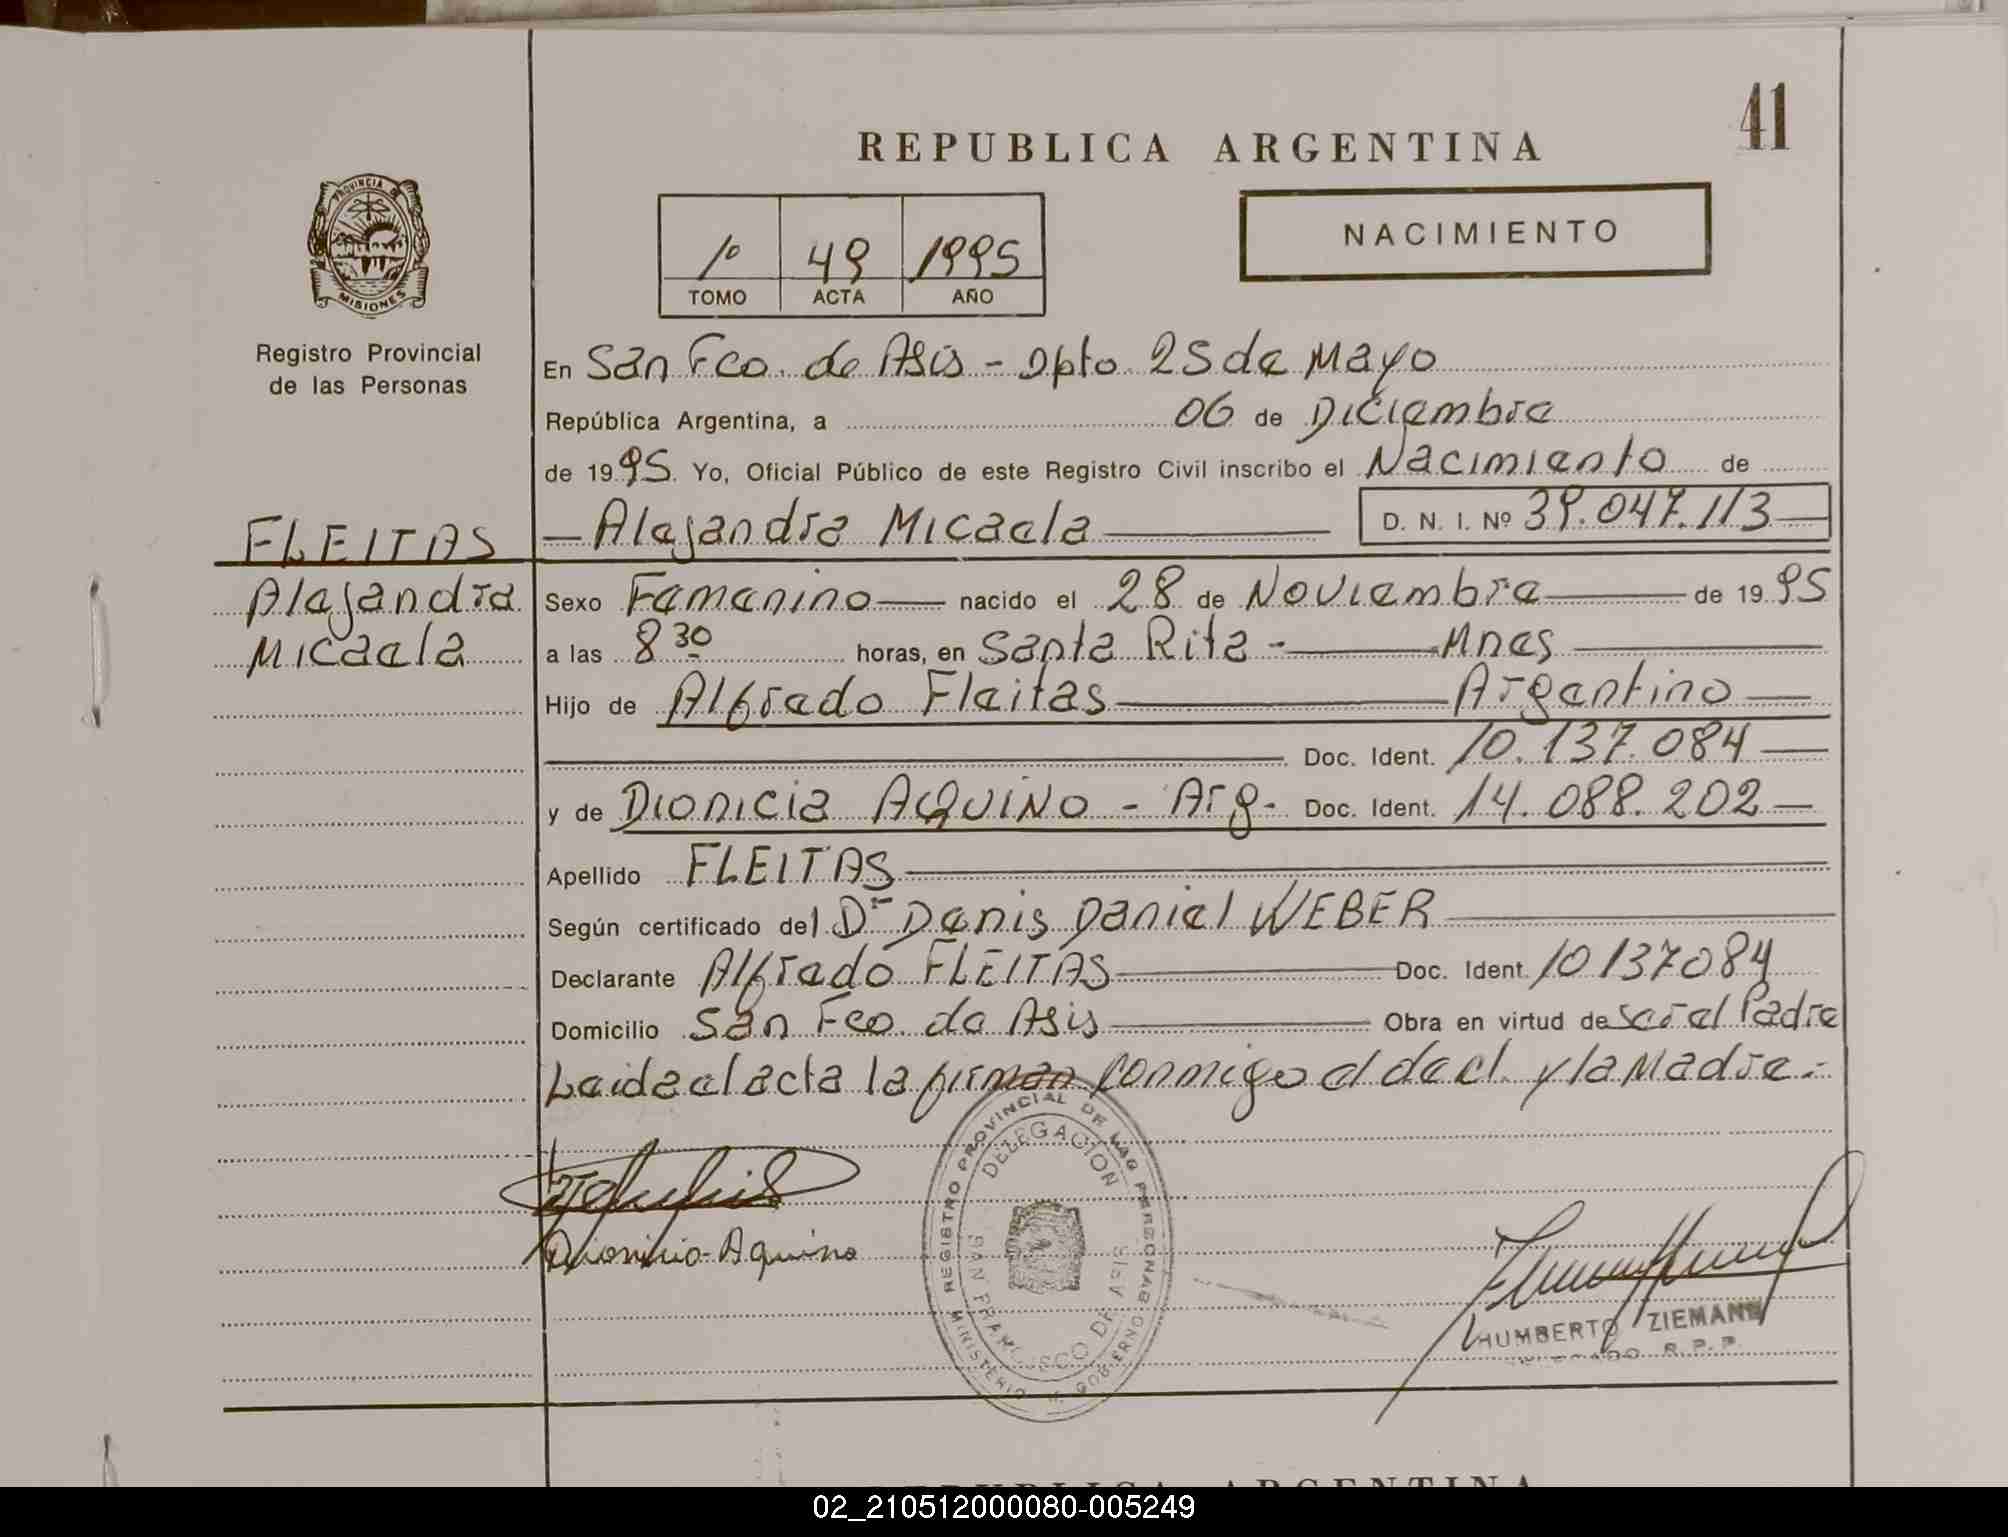 41
REPUBLICA ARGENTINA
PROVINCIA DE
MISIONES
Registro Provincial
de las Personas
1º 49 1995
TOMO ACTA AÑO
NACIMIENTO
En San Fco. de Asis - Dpto 25 de Mayo
República Argentina, a 06 de Diciembre
de 1995. Yo, Oficial Público de este Registro Civil inscribo el Nacimiento de
FLEITAS
Alejandra
Micaela
- Alejandra Micaela D. N. I. Nº 39.047.113
Sexo Femenino nacido el 28 de Noviembre de 1995
a las 8 30 horas, en Santa Rita - Mnes
Hijo de Alfredo Fleitas Argentino
Doc. Ident. 10.137.084
y de Dionicia AQUINO - Arg- Doc. Ident. 14.088.202
Apellido FLEITAS
Según certificado del Dr Denis Daniel WEBER
Declarante Alfredo FLEITAS Doc. Ident. 10137084
Domicilio San Fco. de Asis Obra en virtud de ser el Padre
Leida el acta la firman conmigo el decl. y la Madre.-
Dionicia Aquino
REGISTRO PROVINCIAL DE LAS PERSONAS
DELEGACION
SAN FRANCISCO DE ASIS
MINISTERIO DE GOBIERNO
HUMBERTO ZIEMANN
R. P. P.
REPUBLICA ARGENTINA
02_210512000080-005249